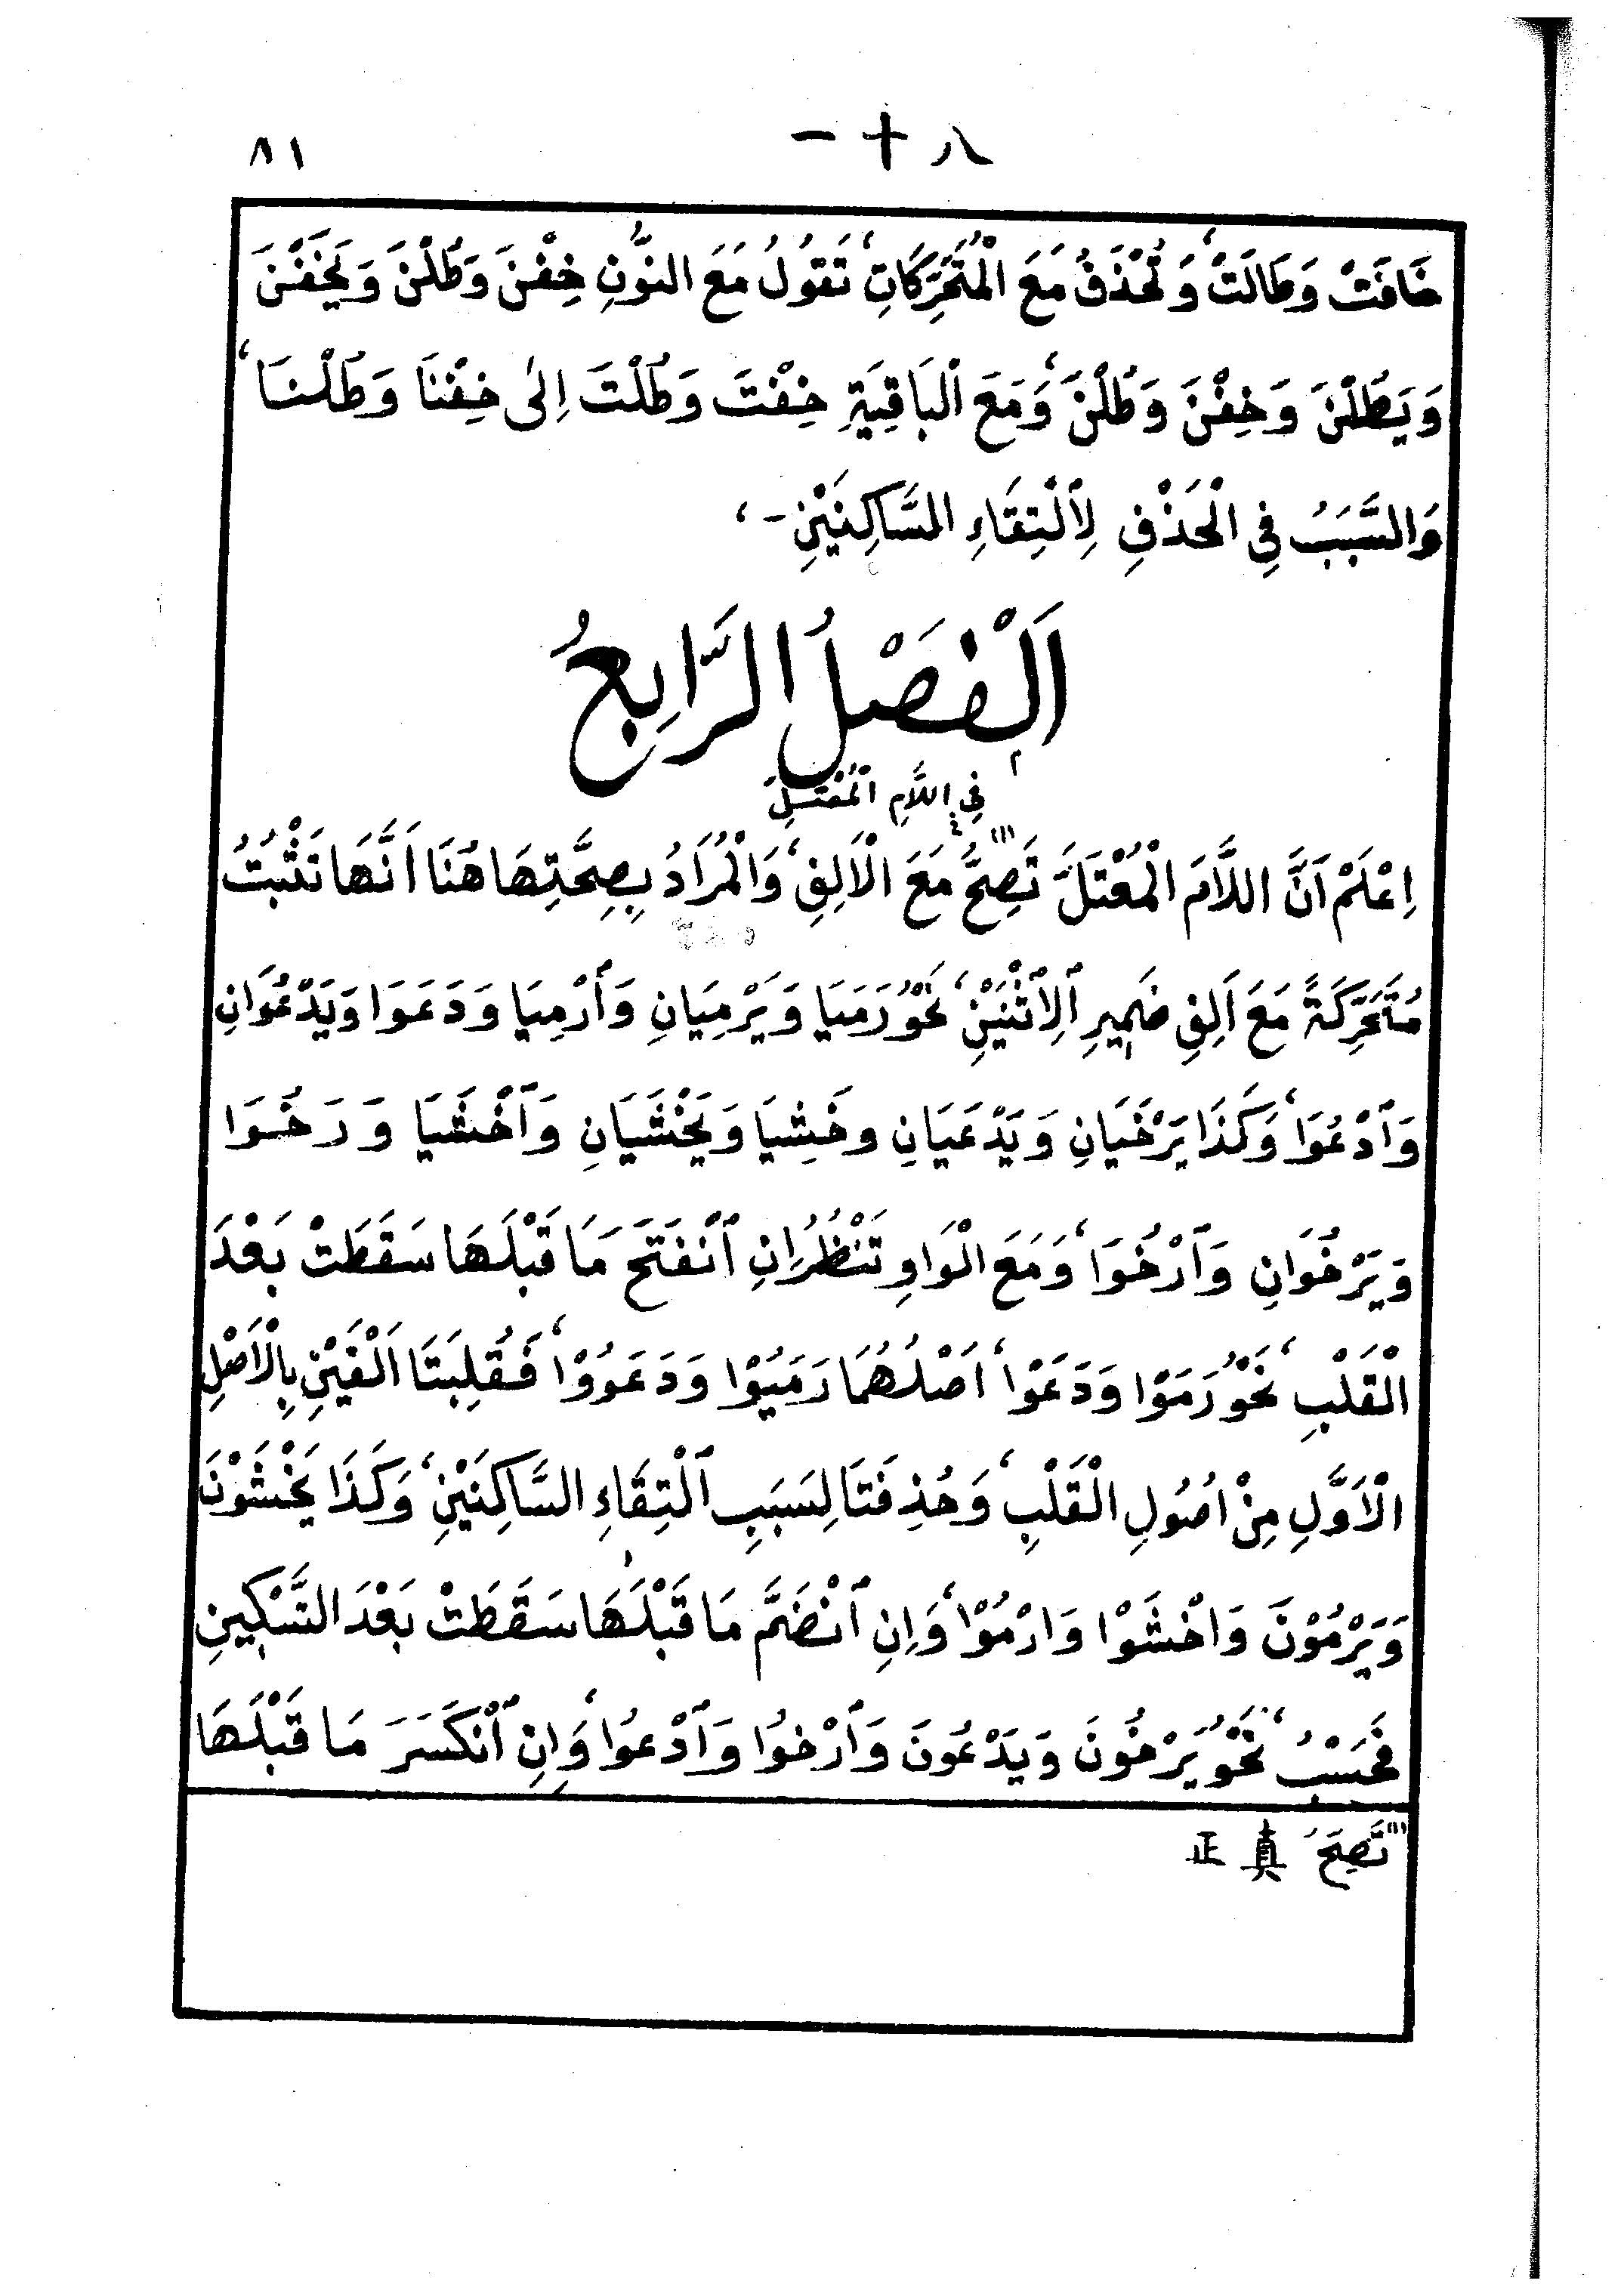 ٨١
一十八
خَافَتْ وَطَالَتْ، وَتُحْذَفُ مَعَ الْمُتَحَرِّكَاتِ، تَقُولُ مَعَ النُّونِ خِفْنَ وَطُلْنَ وَيَخَفْنَ
وَيَطُلْنَ وَخِفْنَ وَطُلْنَ، وَمَعَ الْبَاقِيَةِ خِفْتَ وَطُلْتَ اِلَى خِفْنَا وَطُلْنَا،
وَالسَّبَبُ فِي الْحَذْفِ لِاَلْتِقَاءِ السَّاكِنَيْنِ-،
اَلْفَصْلُ الرَّابِعُ
فِي اللَّامِ الْمُعْتَلِّ
اِعْلَمْ اَنَّ اللَّامَ الْمُعْتَلَّ تَصِحُّ (١) مَعَ الْاَلِفِ، وَالْمُرَادُ بِصِحَّتِهَا هُنَا اَنَّهَا تَثْبُتُ
مُتَحَرِّكَةً مَعَ اَلِفِ ضَمِيرِ ٱلِاثْنَيْنِ، نَحْوُ رَمَيَا وَيَرْمِيَانِ وَأَرْمِيَا وَدَعَوَا وَيَدْعُوَانِ
وَٱدْعُوَا، وَكَذَا يَرْخَيَانِ وَيَدْعَيَانِ وخَشِيَا وَيَخْشَيَانِ وَٱخْشَيَا وَرَخُوَا
وَيَرْخُوَانِ وَٱرْخُوَا، وَمَعَ الْوَاوِ تَنْظُرُ اِنِ ٱنْفَتَحَ مَا قَبْلَهَا سَقَطَتْ بَعْدَ
الْقَلْبِ، نَحْوُ رَمَوْا وَدَعَوْا، اَصْلُهُمَا رَمَيُوْا وَدَعَوُوْا، فَقُلِبَتَا اَلْفَيْنِ بِالْاَصْلِ
الْاَوَّلِ مِنْ اُصُولِ الْقَلْبِ، وَحُذِفَتَا لِسَبَبِ ٱلْتِقَاءِ السَّاكِنَيْنِ، وَكَذَا يَخْشَوْنَ
وَيَرْمُوْنَ وَاخْشَوْا وَارْمُوْا، وَاِنِ ٱنْضَمَّ مَا قَبْلَهَا سَقَطَتْ بَعْدَ التَّسْكِينِ
فَحَسْبُ، نَحْوُ يَرْخُونَ وَيَدْعُونَ وَٱرْخُوا وَٱدْعُوا، وَاِنِ ٱنْكَسَرَ مَا قَبْلَهَا
(١) تَصِحَّ 真正